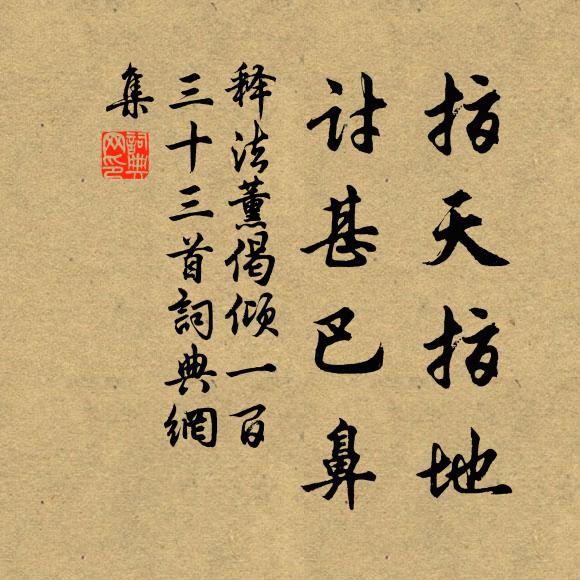 指天指地
討甚巴鼻
释法薰偈傾一百
三十三首詞典網
集
詞典
网印